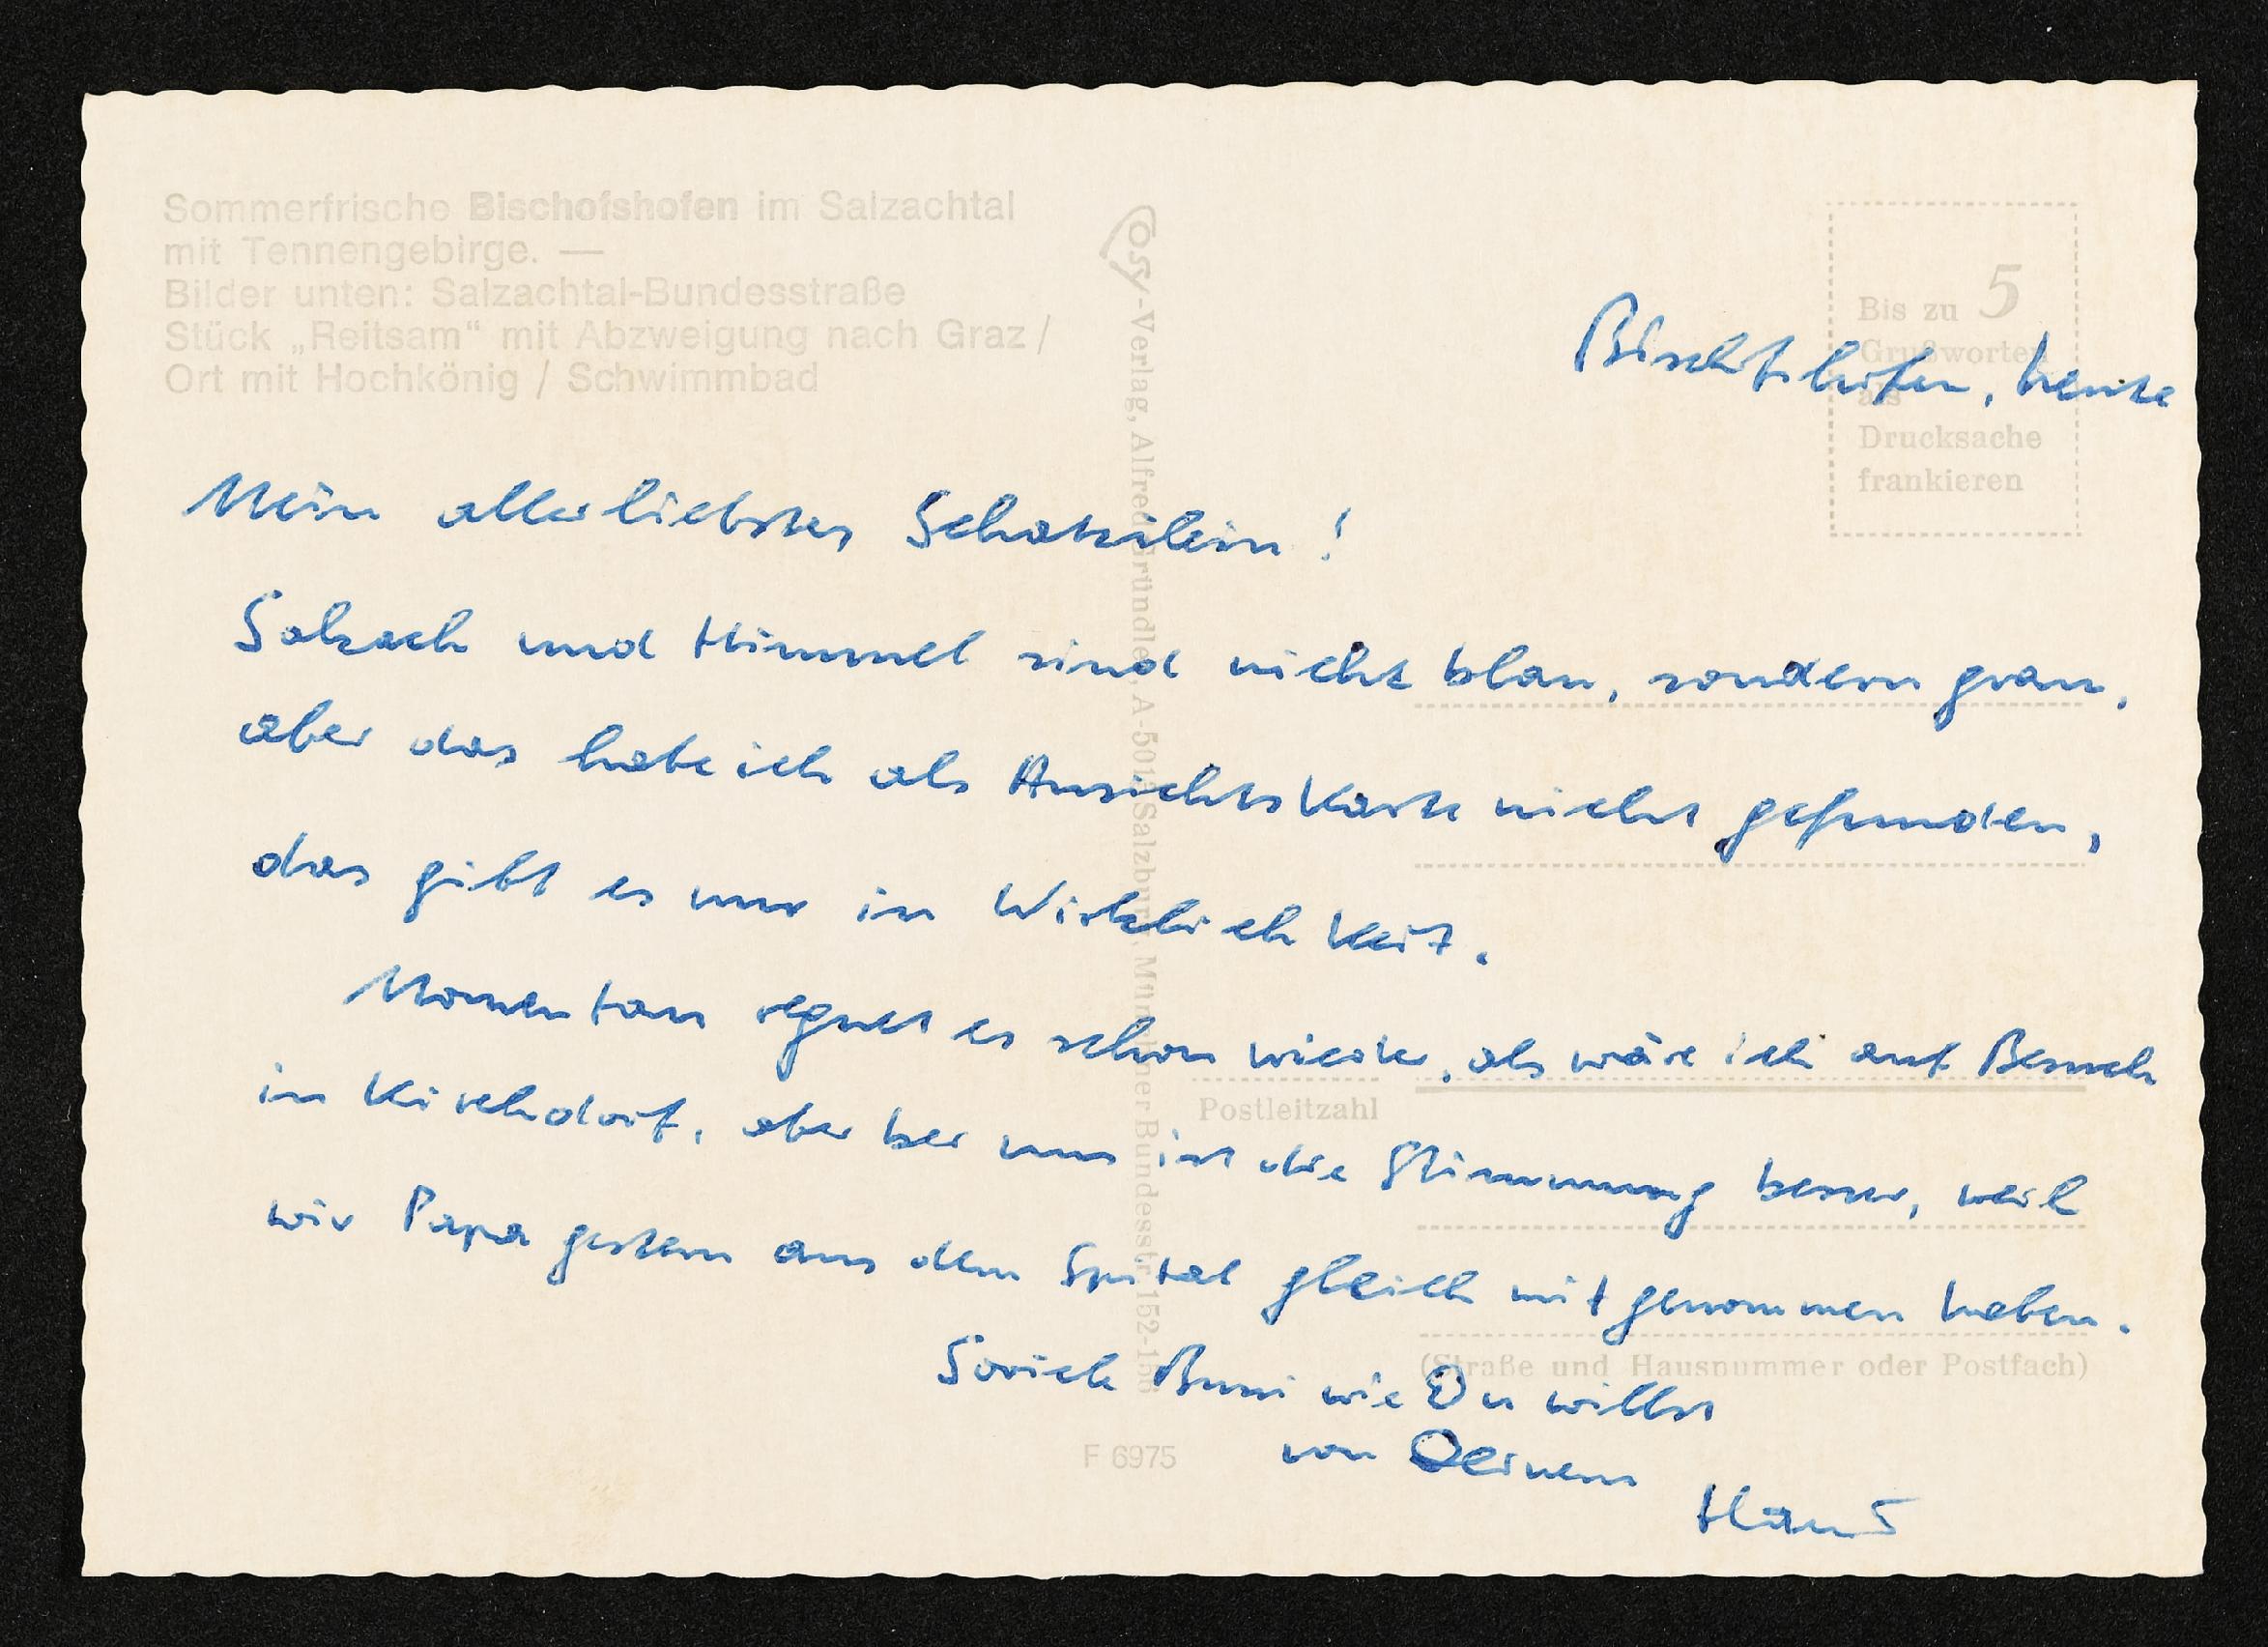 Sommerfrische Bischofshofen im Salzachtal
mit Tennengebirge. —
Bilder unten: Salzachtal-Bundesstraße
Stück „Reitsam“ mit Abzweigung nach Graz /
Ort mit Hochkönig / Schwimmbad
Cosy-Verlag, Alfred Gründler, A-5012 Salzburg, Münchner Bundesstr. 152-156
Bis zu 5
Grußworten
als
Drucksache
frankieren
Bischofshofen, heute
Mein allerliebstes Schatzilein!
Salzach und Himmel sind nicht blau, sondern grau,
aber das habe ich als Ansichtskarte nicht gefunden,
das gibt es nur in Wirklichkeit.
Momentan regnet es schon wieder, als wäre ich auf Besuch
in Kirchdorf, aber bei uns ist die Stimmung besser, weil
wir Papa gestern aus dem Spital gleich mitgenommen haben.
Soviele Bussi wie Du willst
von Deinem
Hans
Postleitzahl
(Straße und Hausnummer oder Postfach)
F 6975